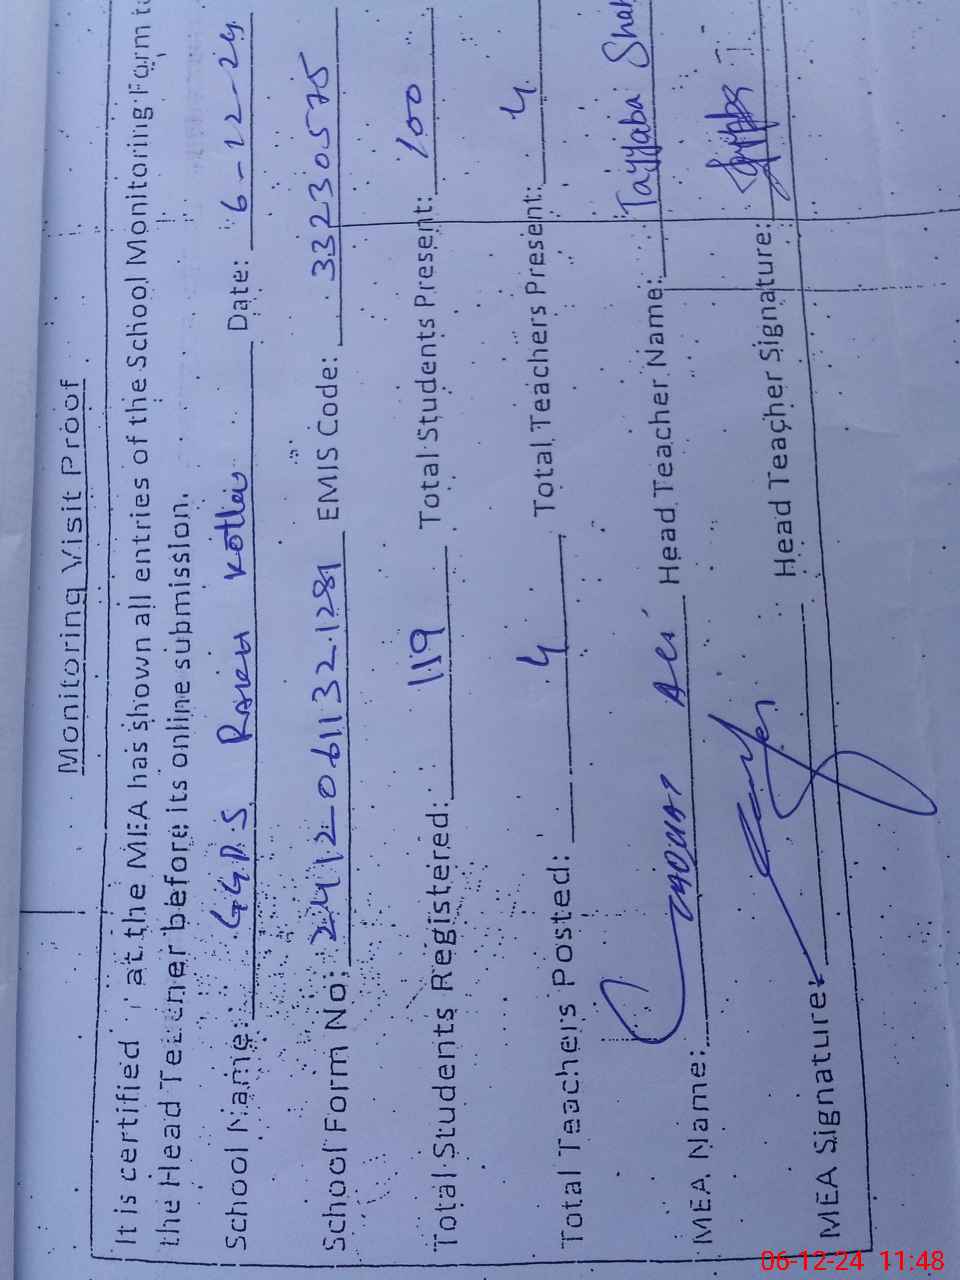 Monitoring Visit Proof
It is certified at the MEA has shown all entries of the School Monitoring Form to
the Head Teacher before its online submission.
School Name: GGPS Kotley Date: 6-12-24
School Form No: 24120611321281 EMIS Code: 33230575
Total Students Registered: 119 Total Students Present: 100
Total Teachers Posted: 4 Total Teachers Present: 4
MEA Name: Ali Head Teacher Name: Tayyaba Shah
MEA Signature: Head Teacher Signature:
06-12-24 11:48